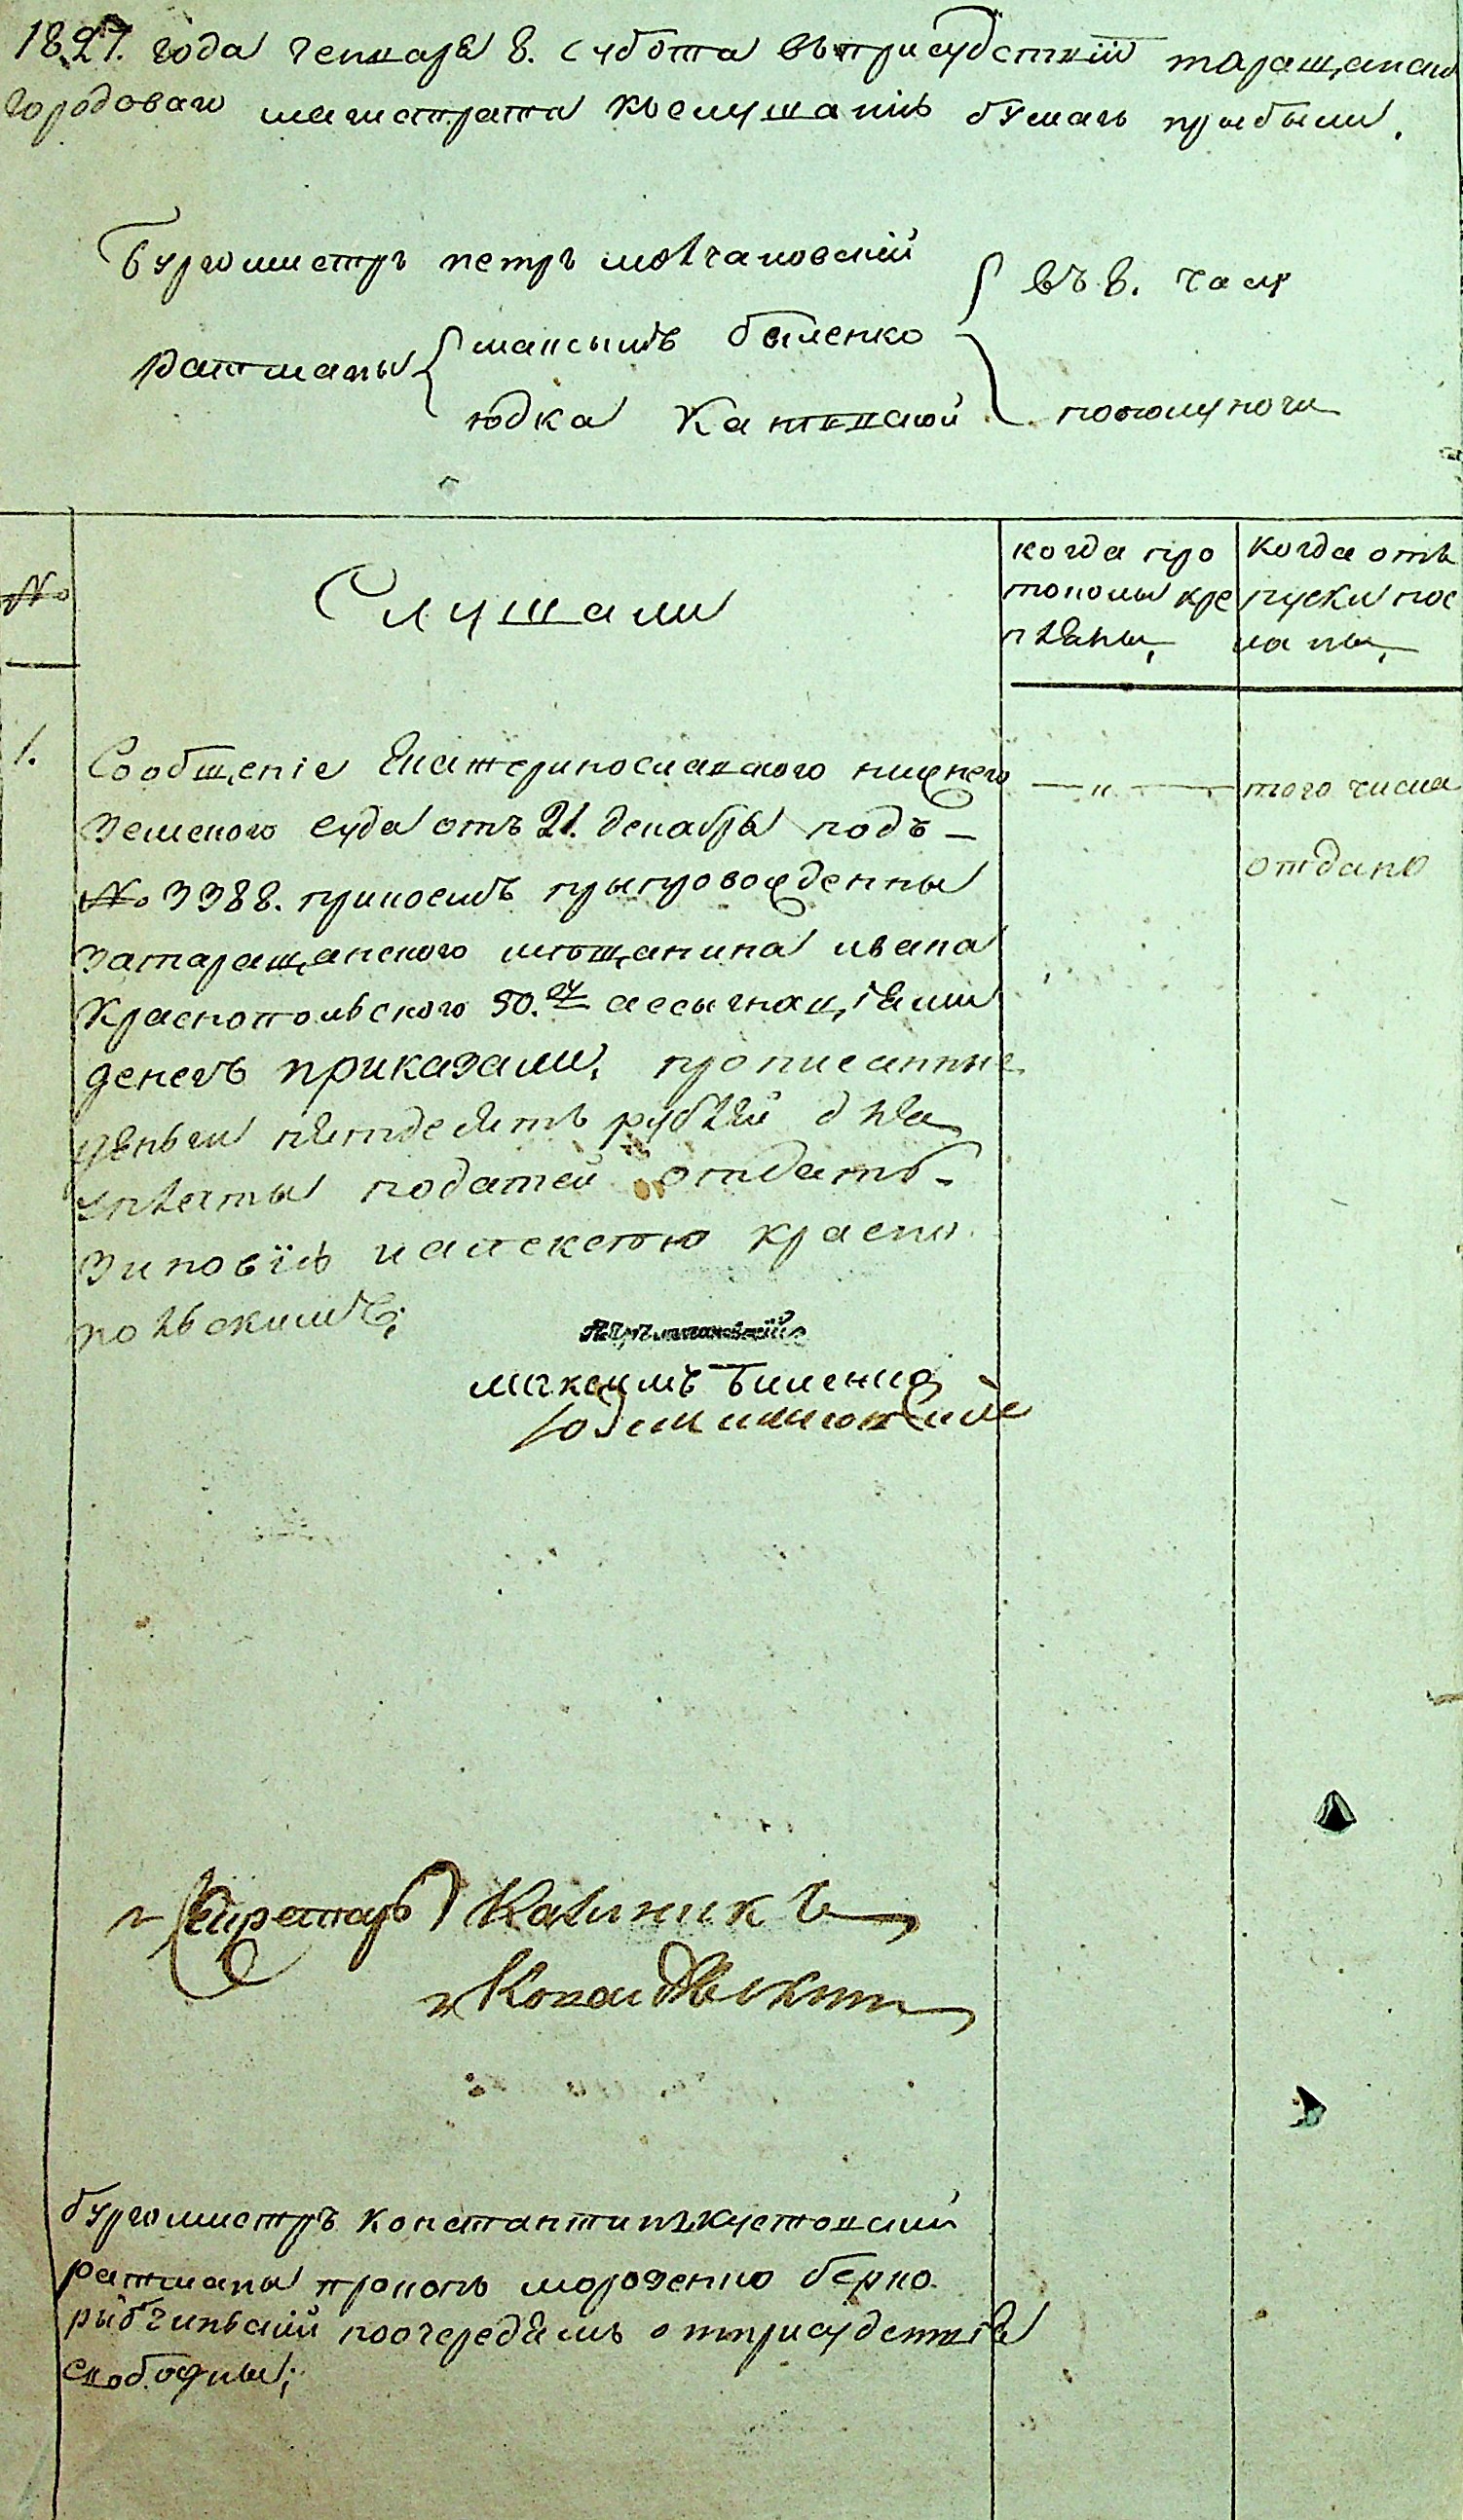 1827. года генваря 8. субота въприсудствій таращанскаго
городоваго магистрата кослушанію бумагъ прыбыли,
Бургомистръ петръ молчановскій
въ 8. часу
ратманы максымъ быленко
юдка Каневской
пополуночи
№
Слушали
когда про
токолы кре
пляны,
когда отъ
пуски пос
ла ны,
1.
Сообщеніе Екатеринославского нижнего
земского суда отъ 21. декабря подъ –
№ 3388. приносимъ прыпровожденны
затаращанского мѣщанина ивана
Краснопольского 50. ру ассыгнаціями
денегъ приказали, прописанные
деньги пятдесятъ рублей для
уплаты податей отдать
зиновію иалексею красно
польскимъ;
—„—
того числа
отдано
максимъ Биленко
Секретарь Калиникъ
бургомистръ константинъ жустовскій
ратманы прокопъ морозенко берко
рыбчинскій поочередямъ отприсудствія
свободны;